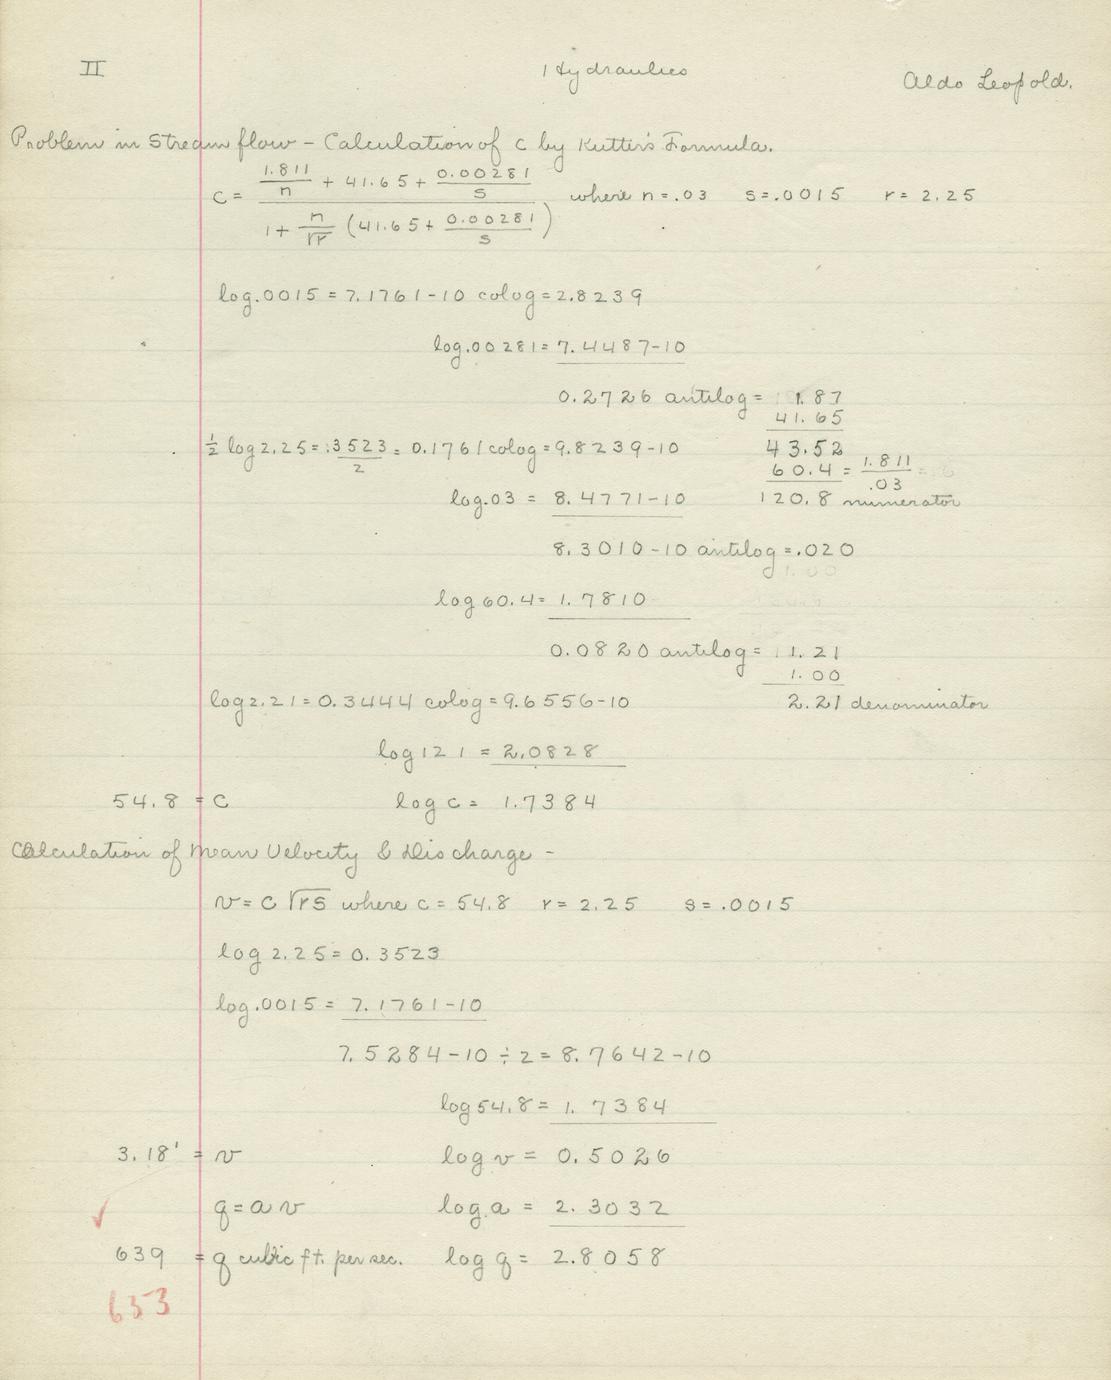 II
Hydraulics
Aldo Leopold.
Problem in Stream flow – Calculation of c by Kutter's Formula.
c = (1.811/n + 41.65 + 0.00281/s) / (1 + n/√r (41.65 + 0.00281/s)) where n = .03 s = .0015 r = 2.25
log .0015 = 7.1761-10 colog = 2.8239
log .00281 = 7.4487-10
0.2726 antilog = 1.87
41.65
½ log 2.25 = .3523/2 = 0.1761 colog = 9.8239-10 43.52
60.4 = 1.811/.03
log .03 = 8.4771-10 120.8 numerator
8.3010-10 antilog = .020
1.00
log 60.4 = 1.7810
0.0820 antilog = 1.21
1.00
log 2.21 = 0.3444 colog = 9.6556-10 2.21 denominator
log 121 = 2.0828
54.8 = c log c = 1.7384
Calculation of Mean Velocity & Discharge –
v = c √rs where c = 54.8 r = 2.25 s = .0015
log 2.25 = 0.3523
log .0015 = 7.1761-10
7.5284-10 ÷ 2 = 8.7642-10
log 54.8 = 1.7384
3.18' = v log v = 0.5026
q = a v log a = 2.3032
639 = q cubic ft. per sec. log q = 2.8058
653